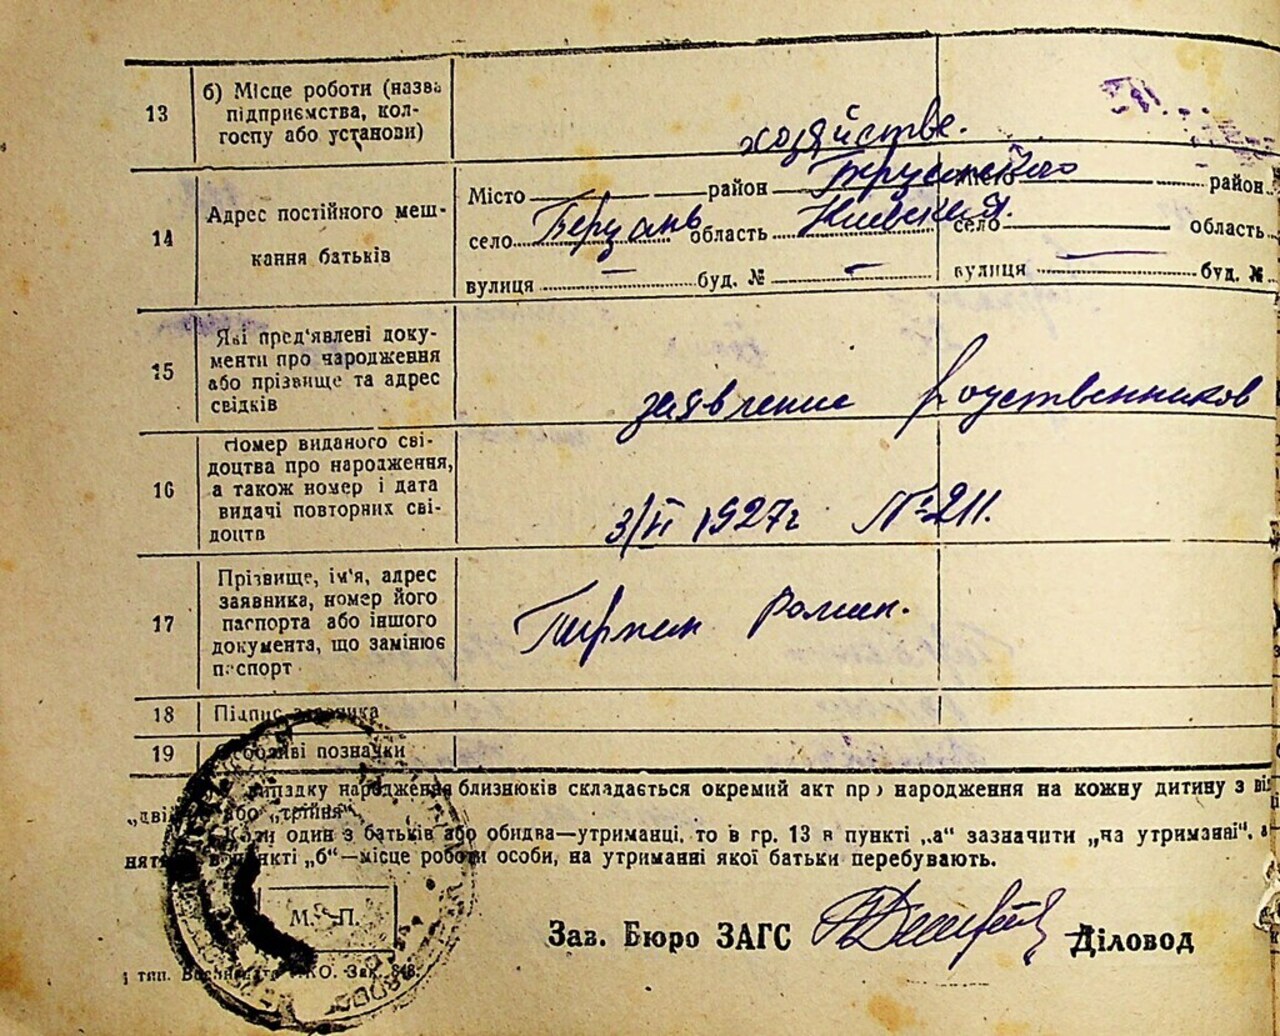 13
б) Місце роботи (назва
підприємства, кол-
госпу або установи)
хозяйстве.
14
Адрес постійного меш-
кання батьків
Місто район Місто район
село Березань область Киевская село область
вулиця — буд. № — вулиця — буд. №
15
Які пред'явлені доку-
менти про народження
або прізвище та адрес
свідків
заявление родственников
16
Номер виданого сві-
доцтва про народження,
а також номер і дата
видачі повторних сві-
доцтв
3/VI 1927г №211.
17
Прізвище, ім'я, адрес
заявника, номер його
паспорта або іншого
документа, що замінює
паспорт
Роман.
18
Підпис заявника
19
Особливі позначки
випадку народження близнюків складається окремий акт про народження на кожну дитину з
„двійня“ або „трійня“
Коли один з батьків або обидва—утриманці, то в гр. 13 в пункті „а“ зазначити „на утриманні“, а
в пункті „б“—місце роботи особи, на утриманні якої батьки перебувають.
М. П.
Зав. Бюро ЗАГС Діловод
тип. КО. Зак. 848.